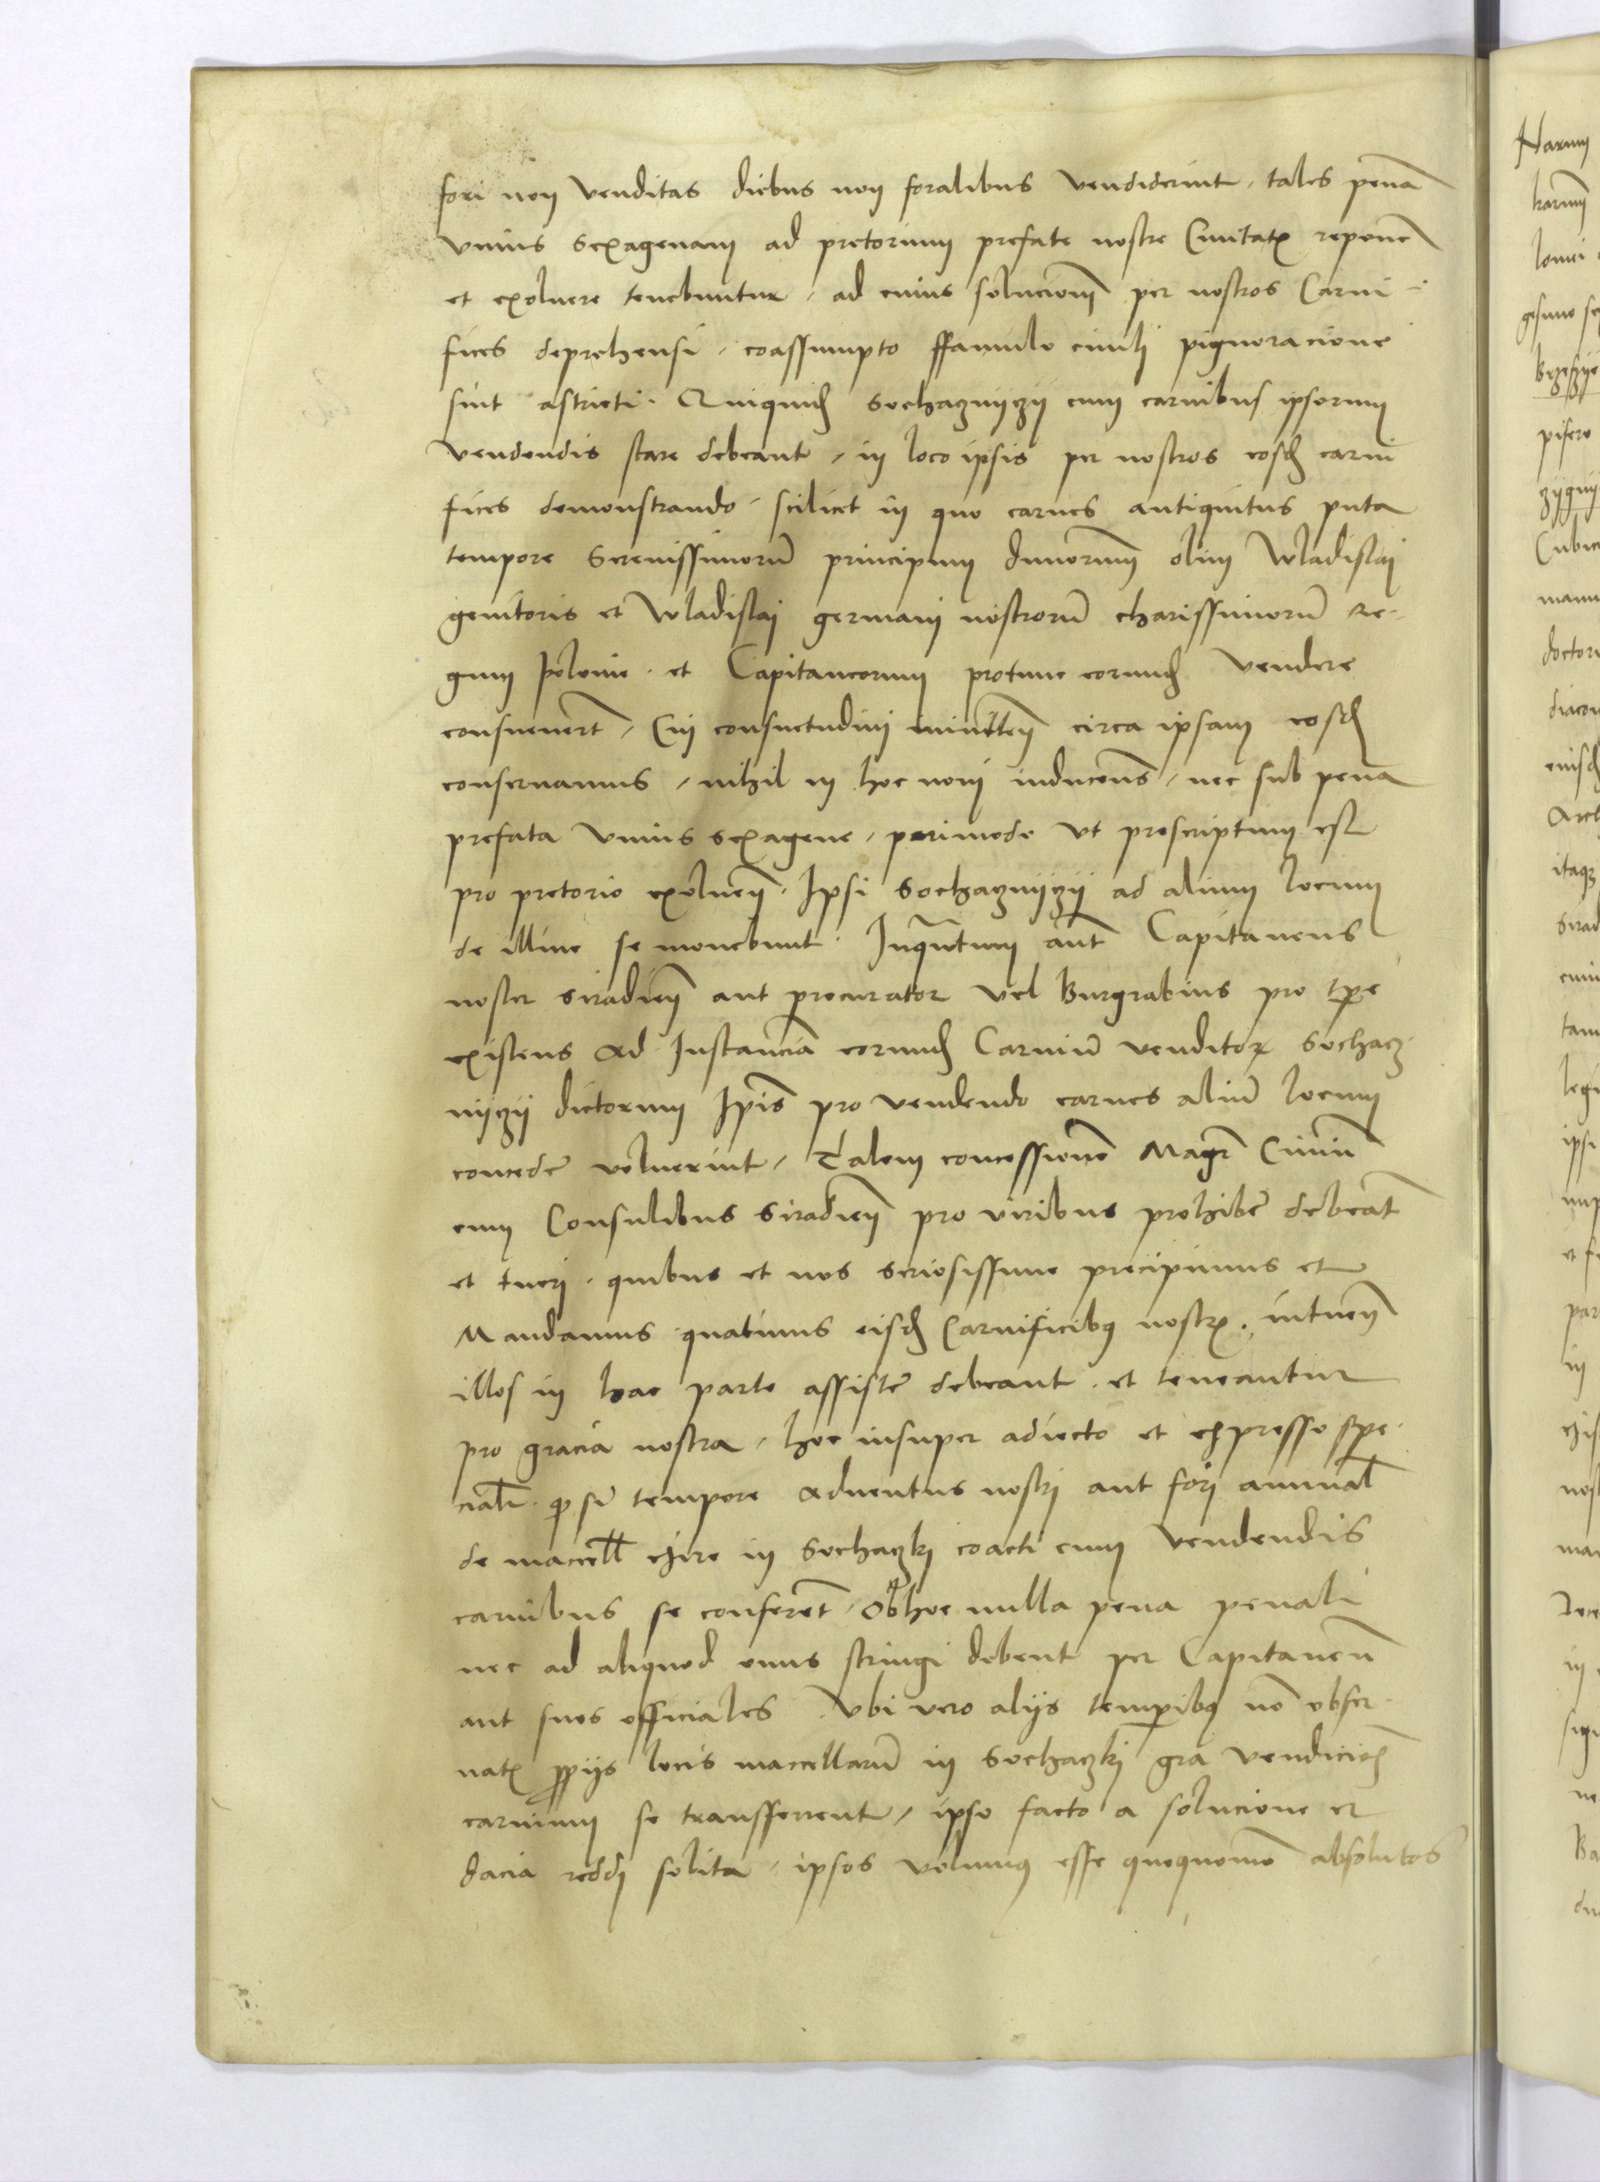 fori non venditas diebus non foralibus vendiderint, tales penā
vnius sexagenam ad pretorium prefate nostre Ciuitatꝭ reponē
et exoluere tenebuntur, ad cuius solucionē per nostros Carni-
fices deprehensi, coassumpto ffamulo ciuili pignoracione
sint astricti. Quiquidē Sochacznyczy cum carnibus ipsorum
vendendis stare debeant, in loco ipsis per nostros eosdē carni
fices demonstrando, scilicet in quo carnes antiquitus puta
tempore Serenissimorū principum dnnorum olim Wladislai
genitoris et Wladislai germani nostrorū charissimorū Re-
gum Polonie. et Capitaneorum protunc eorundē vendere
consueuerūt, Cui consuetudini circa ipsam eosdē
conseruamus, nihil in hoc noui inducen̄s, nec sub pena
prefata vnius sexagene, parimodo vt prescriptum est
pro pretorio exoluen̄. Ipsi Sochacznyczy ad alium locum
de illinc se mouebunt. Inqȝntum aut̄ Capitaneus
noster Siradien̄ aut procurator vel Burgrabius pro tp̄e
existens ad Instanciā eorundē Carniū venditoꝝ Sochacz-
nyczy dictorum Ip̄is pro vendendo carnes aliū locum
concedē voluerint, Talem concessionē Magr̄ Ciuiū
cum Consulibus Siradien̄ pro viribus prohibē debeāt
et tueri. quibus et nos seriosissime precipimus et
Mandamus quatinus eisdē Carnificibꝯ nostrꝭ. intuen̄
illos in hac parte assistē debeant. et teneantur
pro gracia nostra, hoc insuper adiecto et expresso spe-
cialī. ꝙ si tempore aduentus nostri aut fori annual̄
de maccell̄ exire in Sochaczki coacti cum vendendis
carnibus se conferēt, Ob hoc nulla pena penali
nec ad aliquod onus stringi debent per Capitaneū
aut suos officiales. Vbi vero alijs temporibꝯ nō obser-
uatꝭ ꝓprijs locis maccellarū in Sochaczki grā vendiciōis
carnium se transfferrent, ipso facto a solucione et
dacia reddi solita, ipsos volumꝯ esse quoquomō absolutos